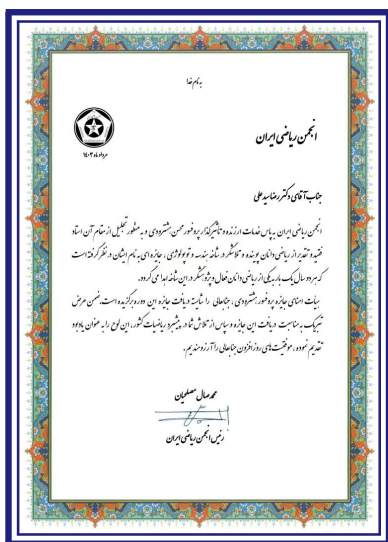 به نام خدا
انجمن ریاضی ایران
مرداد ماه ۱۴۰۳
جناب آقای دکتر رضا سیدعلی
انجمن ریاضی ایران به پاس خدمات ارزنده و تأثیرگذار پروفسور محسن هشترودی و به منظور تجلیل از مقام آن استاد
فقید و تقدیر از ریاضی دانان پوینده و تلاشگر در شاخه هندسه و توپولوژی، جایزه ای به نام ایشان در نظر گرفته است
که هر دو سال یک بار به یکی از ریاضی دانان فعال و پژوهشگر در این شاخه اهدا می گردد.
هیأت امنای جایزه پروفسور هشترودی، جنابعالی را شایسته دریافت جایزه این دوره برگزیده است. ضمن عرض
تبریک به مناسبت دریافت این جایزه و سپاس از تلاش شما در پیشبرد ریاضیات کشور، این لوح را به عنوان یادبود
تقدیم نموده، موفقیت های روزافزون جنابعالی را آرزومندیم.
محمد صال مصلحیان
رئیس انجمن ریاضی ایران